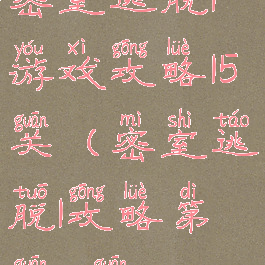 密室逃脱1
yóu xì gōng lüè
游戏攻略15
guān mì shì táo
关(密室逃
tuō gōng lüè dì
脱1攻略第